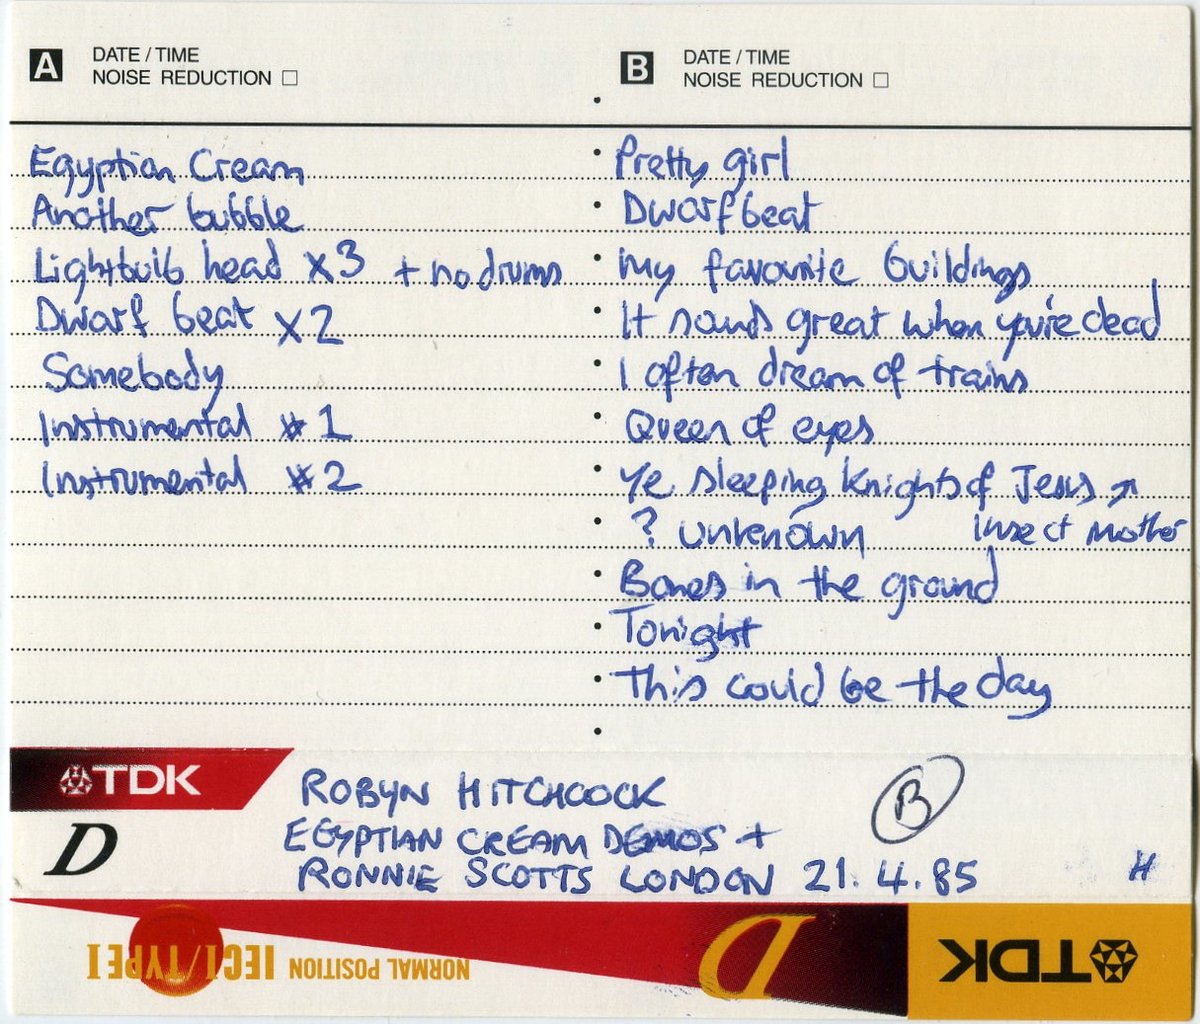 A DATE / TIME
NOISE REDUCTION
Egyptian Cream
Another bubble
Lightbulb head x3 + no drums
Dwarf beat x2
Somebody
Instrumental #1
Instrumental #2
B DATE / TIME
NOISE REDUCTION
Pretty girl
Dwarfbeat
My favourite buildings
It sounds great when you're dead
I often dream of trains
Queen of eyes
Ye sleeping knights of Jesus ↗
? unknown Insect Mother
Bones in the ground
Tonight
This could be the day
TDK
D
ROBYN HITCHCOCK
EGYPTIAN CREAM DEMOS +
RONNIE SCOTTS LONDON 21.4.85
B
H
TDK
D
NORMAL POSITION IECI/TYPE I